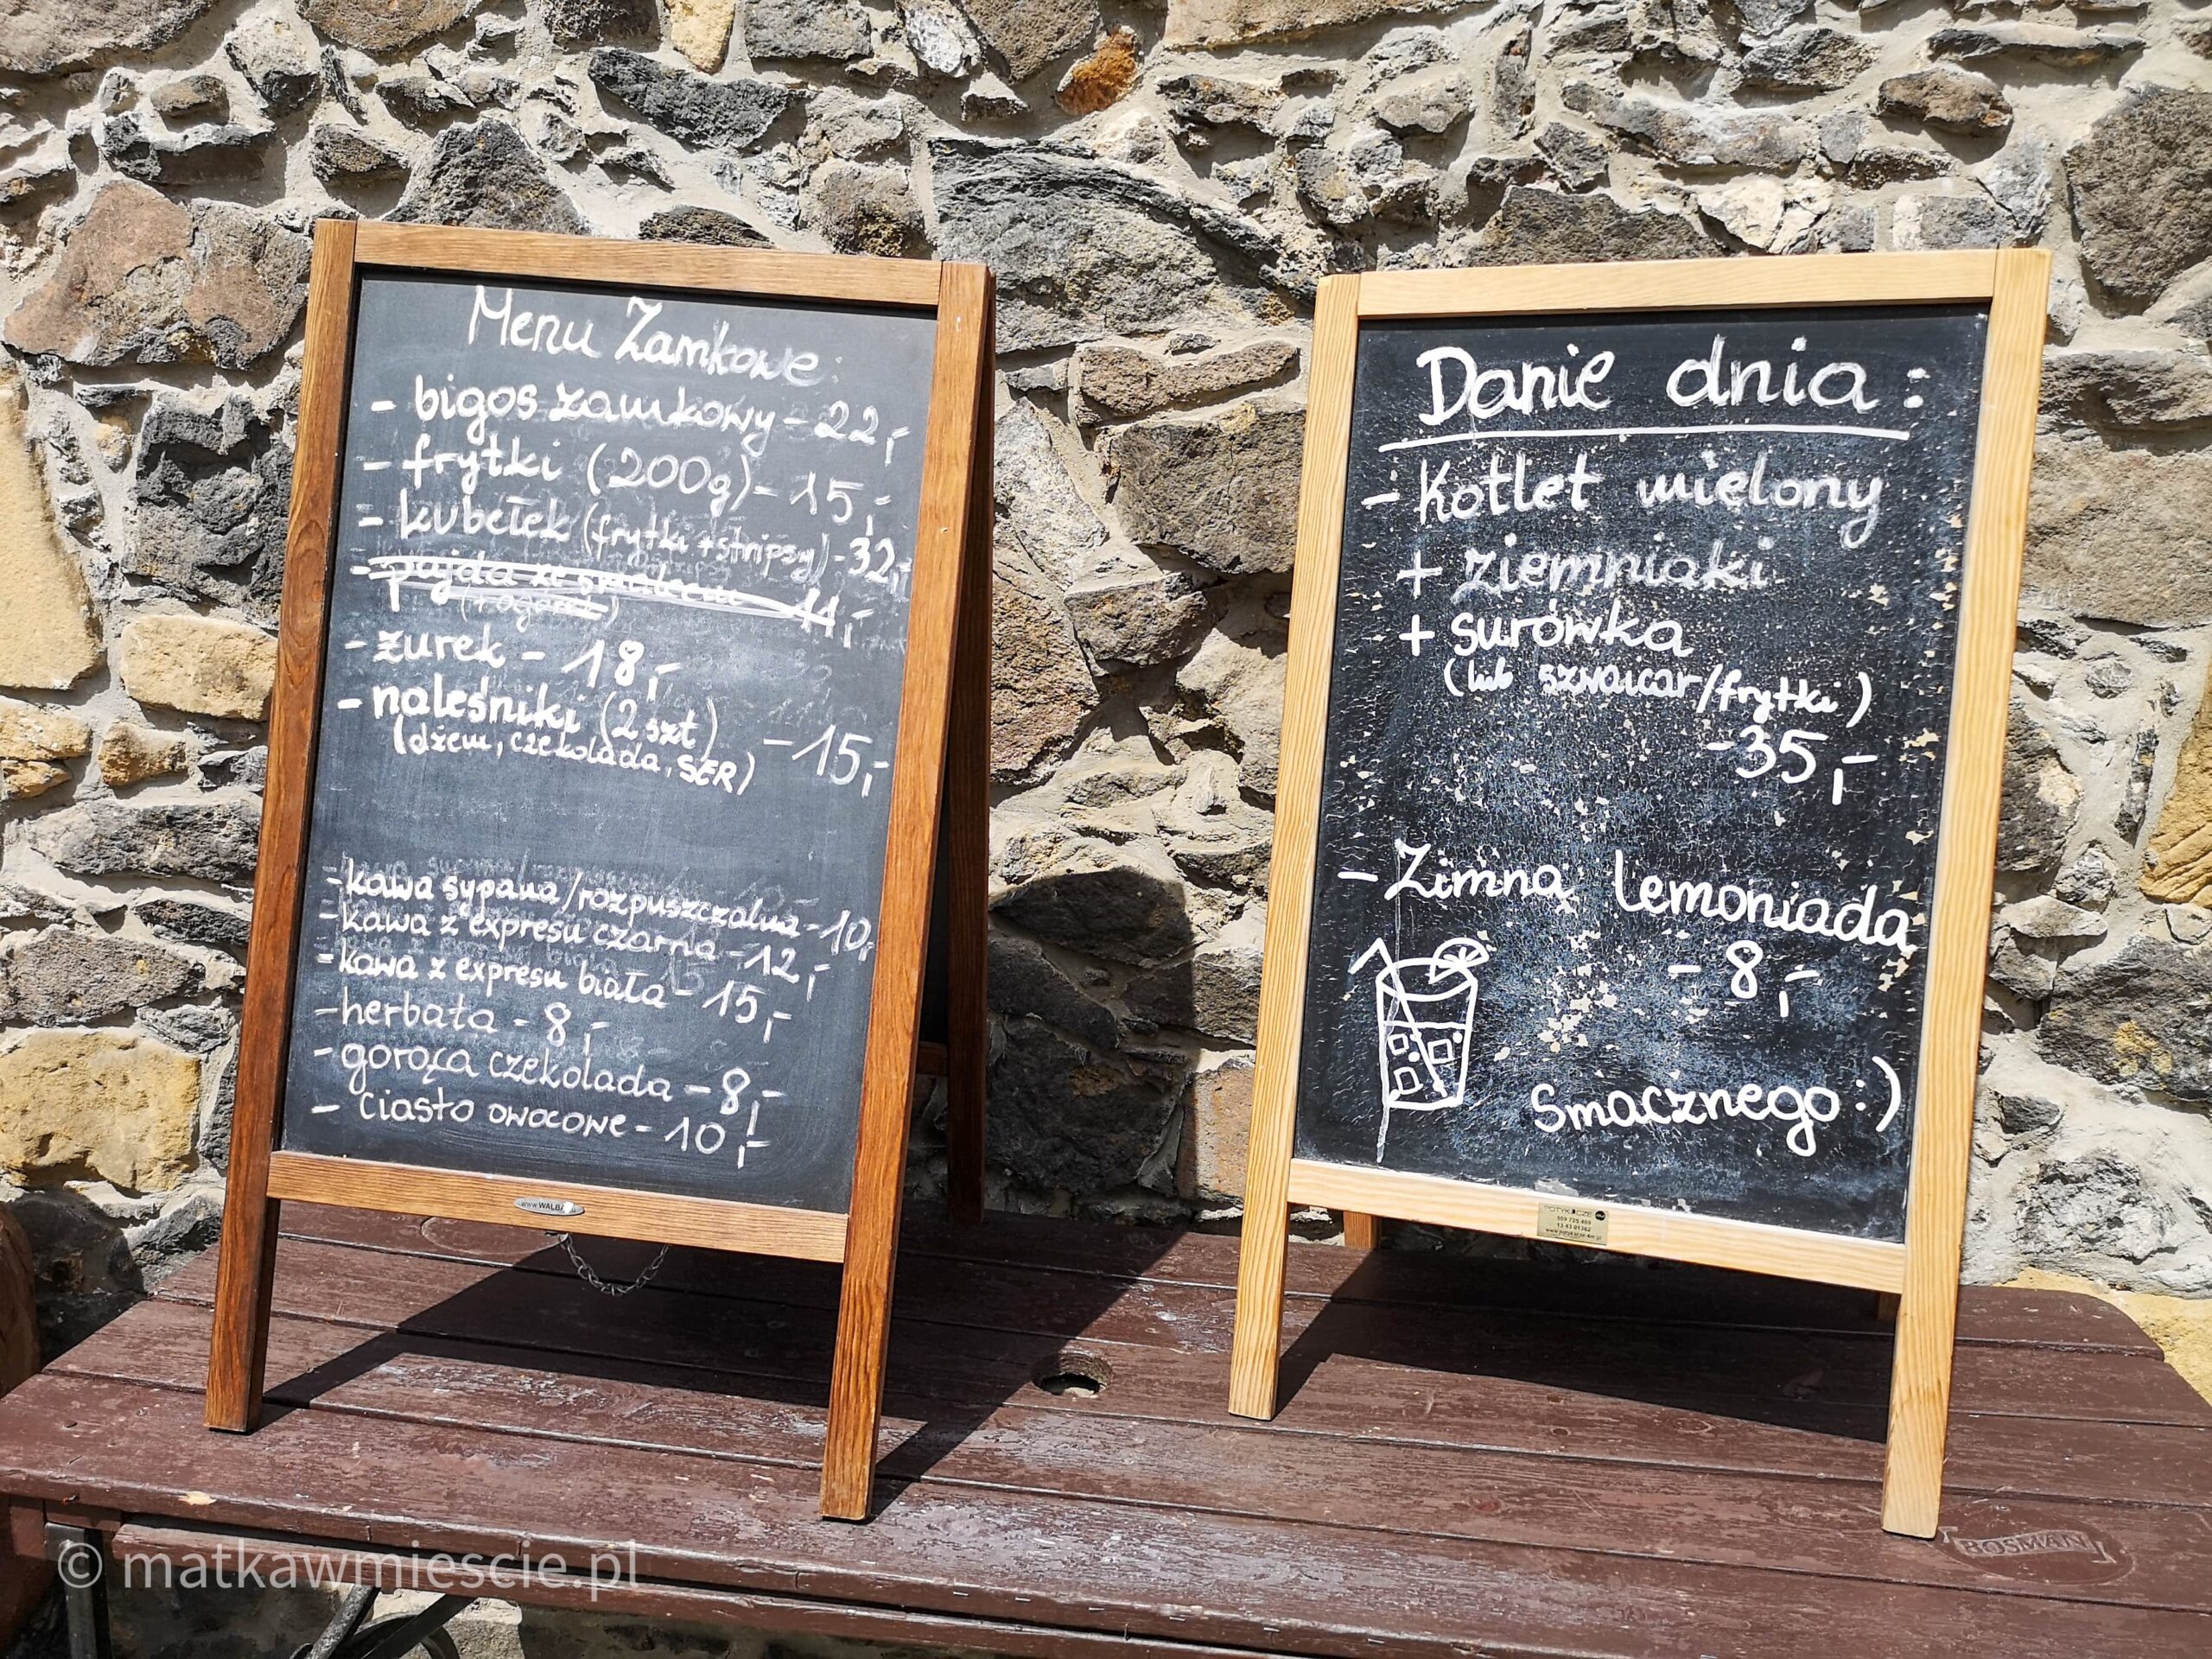 Menu Zamkowe:
- bigos zamkowy - 22,-
- frytki (200g) - 15,-
- kubełek (frytki + stripsy) - 32,-
- pajda ze smalcem 11,-
(+ ogórek)
- żurek - 18,-
- naleśniki (2 szt)
(dżem, czekolada, SER) - 15,-
- kawa sypana/rozpuszczalna - 10,-
- kawa z expresu czarna - 12,-
- kawa z expresu biała - 15,-
- herbata - 8,-
- gorąca czekolada - 8,-
- ciasto owocowe - 10,-
Danie dnia:
- Kotlet mielony
+ ziemniaki
+ surówka
(lub szwajcar/frytki)
- 35,-
- Zimna lemoniada
- 8,-
Smacznego :)
BOSMAN
© matkawmiescie.pl